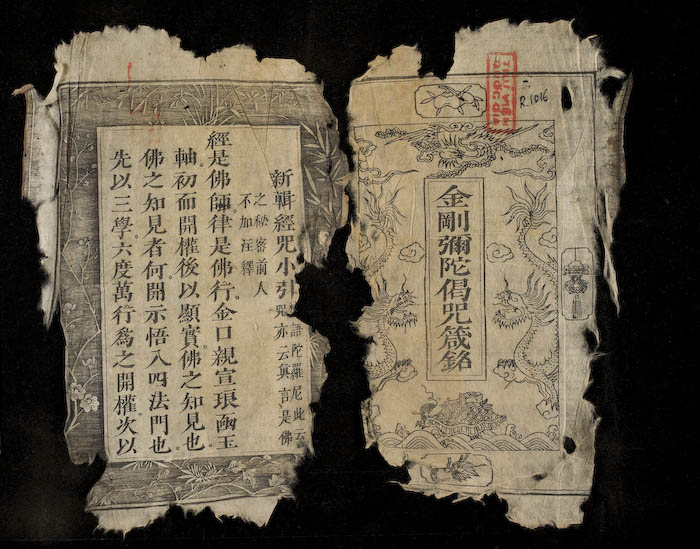 R.1016
THU VIEN
QUOC GIA
金剛彌陀偈咒箴銘
新輯經咒小引
語陀羅尼此云
咒亦云眞言是佛
之秘密前人
不加注釋
經是佛師。律是佛行。金口親宣琅凾玉
軸。初而開權。後以顯實。佛之知見也。
佛之知見者何。開示悟入四法門也。
先以三學六度萬行爲之開權。次以